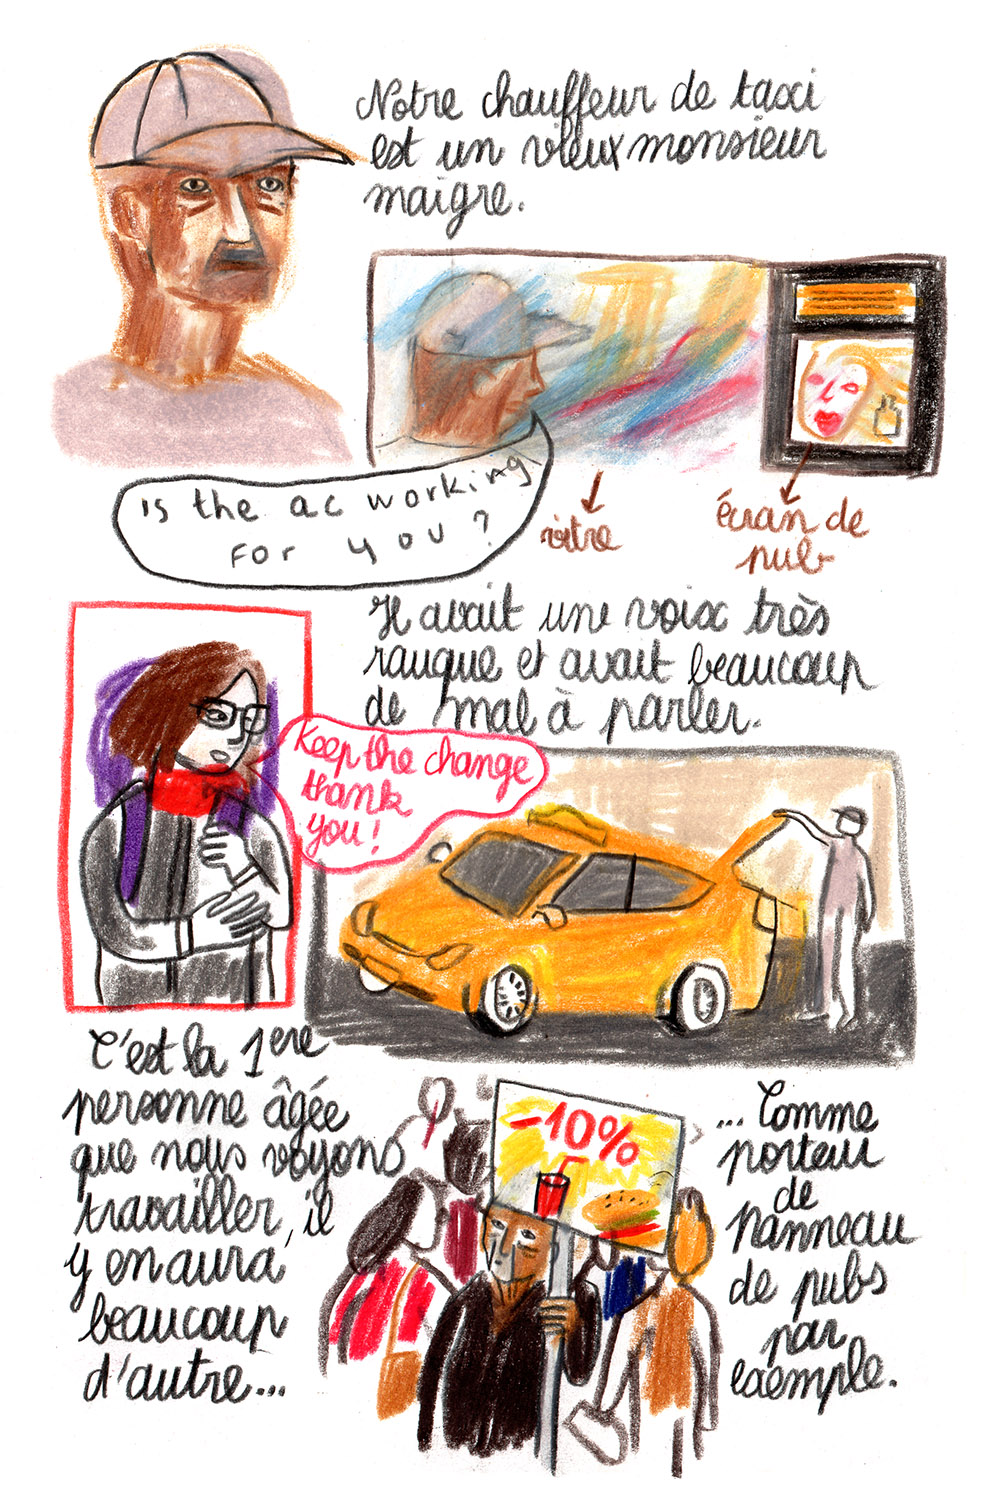 Notre chauffeur de taxi
est un vieux monsieur
maigre.
is the ac working
For you?
vitre
écran de
pub
Il avait une voix très
rauque et avait beaucoup
de mal à parler.
Keep the change
thank
you!
C'est la 1ere
personne âgée
que nous voyons
travailler, il
y en aura
beaucoup
d'autre...
-10%
... Comme
porteur
de
panneau
de pubs
par
exemple.